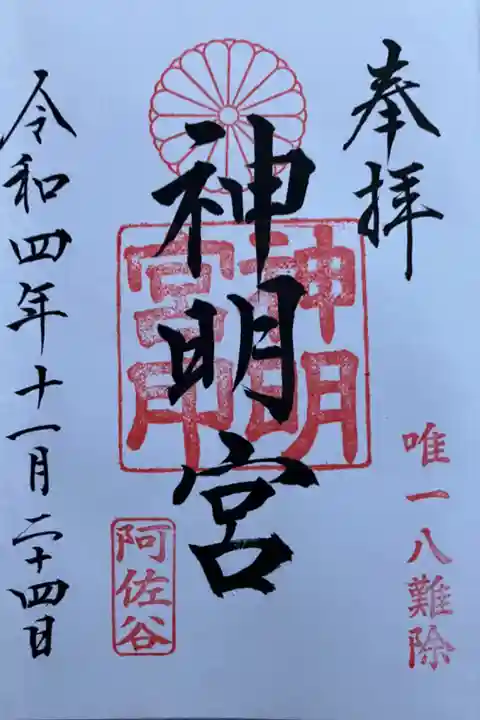 奉拝
唯一八難除
神明宮
神明宮印
阿佐谷
令和四年十一月二十四日